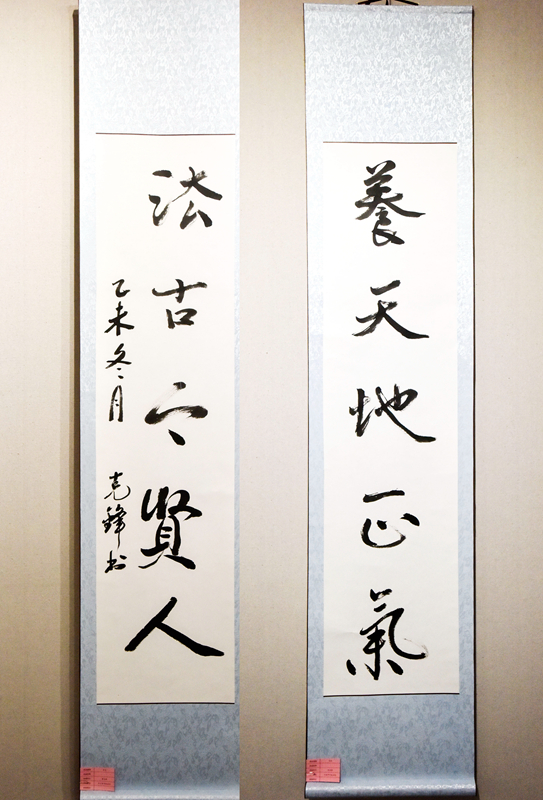 養天地正氣
法古今賢人
乙未冬月 克鋒書